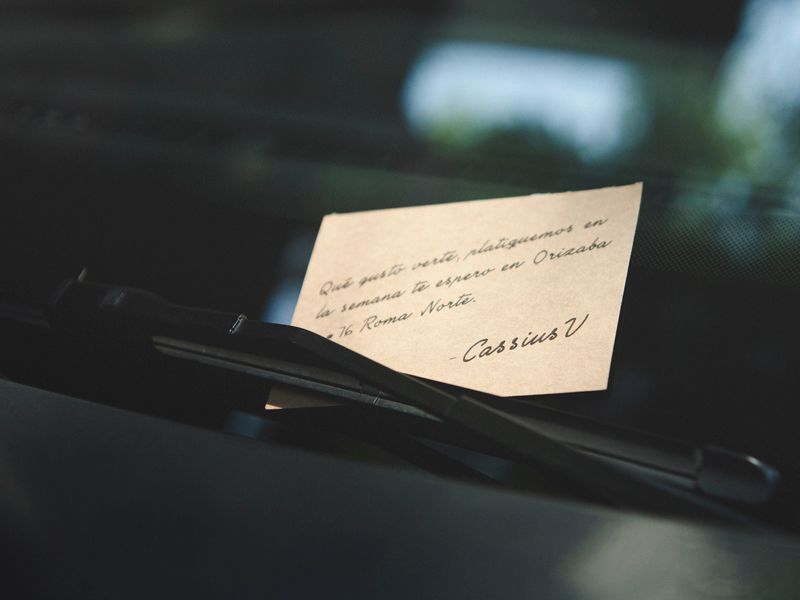 Qué gusto verte, platiquemos en
la semana te espero en Orizaba
76 Roma Norte.
- Cassius V